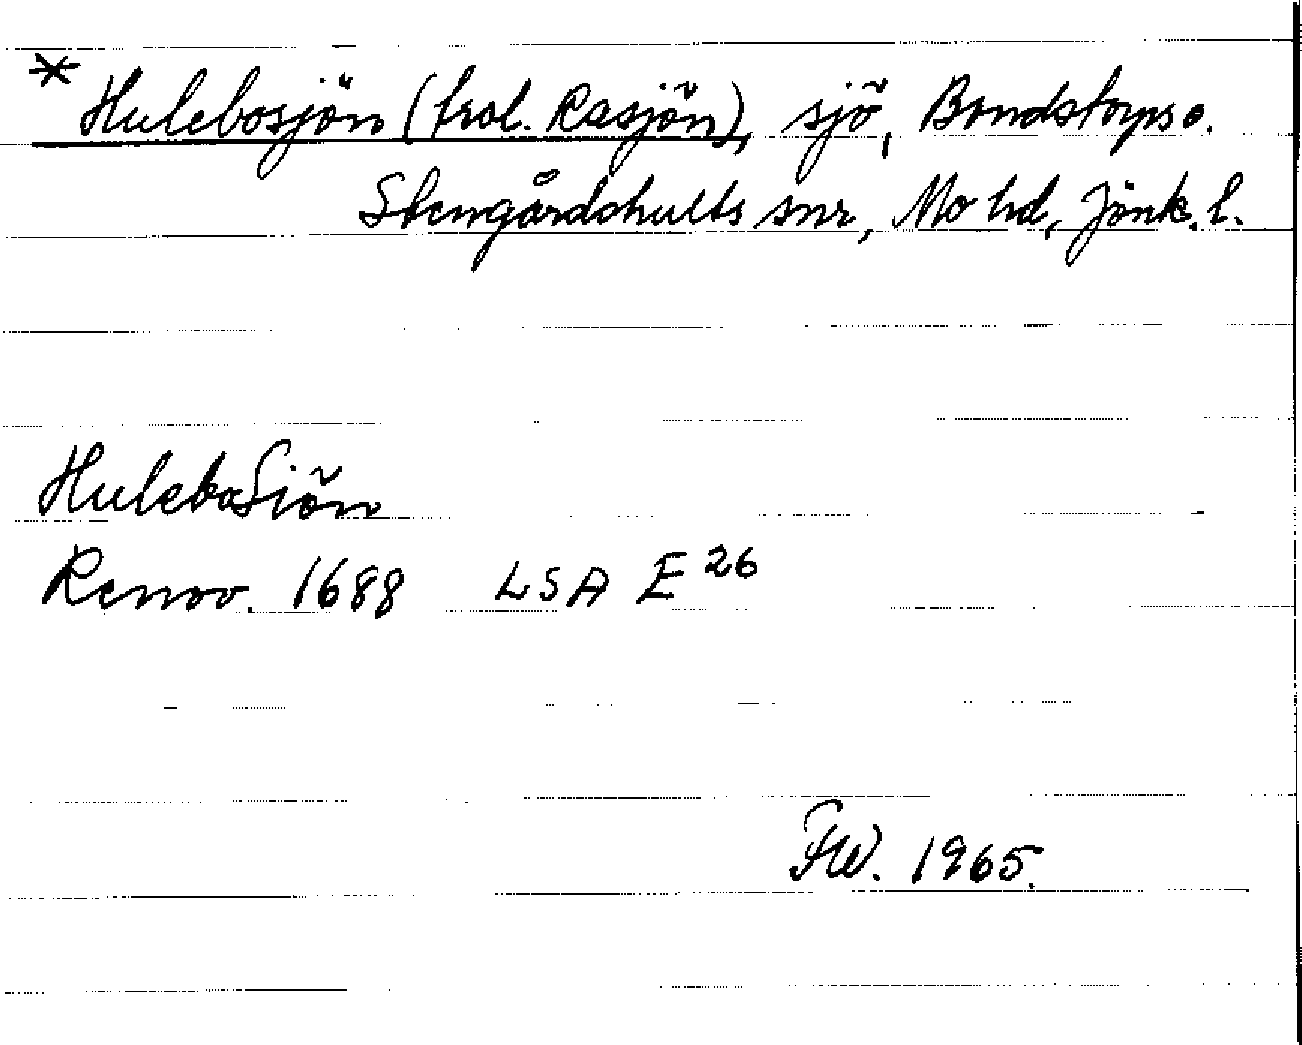 * Hulebosjön (trol. Rasjön), sjö, Bondstorps o.
Stengårdshults snr, Mo hd, Jönk. l.
HuleboSiön
Renov. 1688 LSA E 26
FW. 1965.